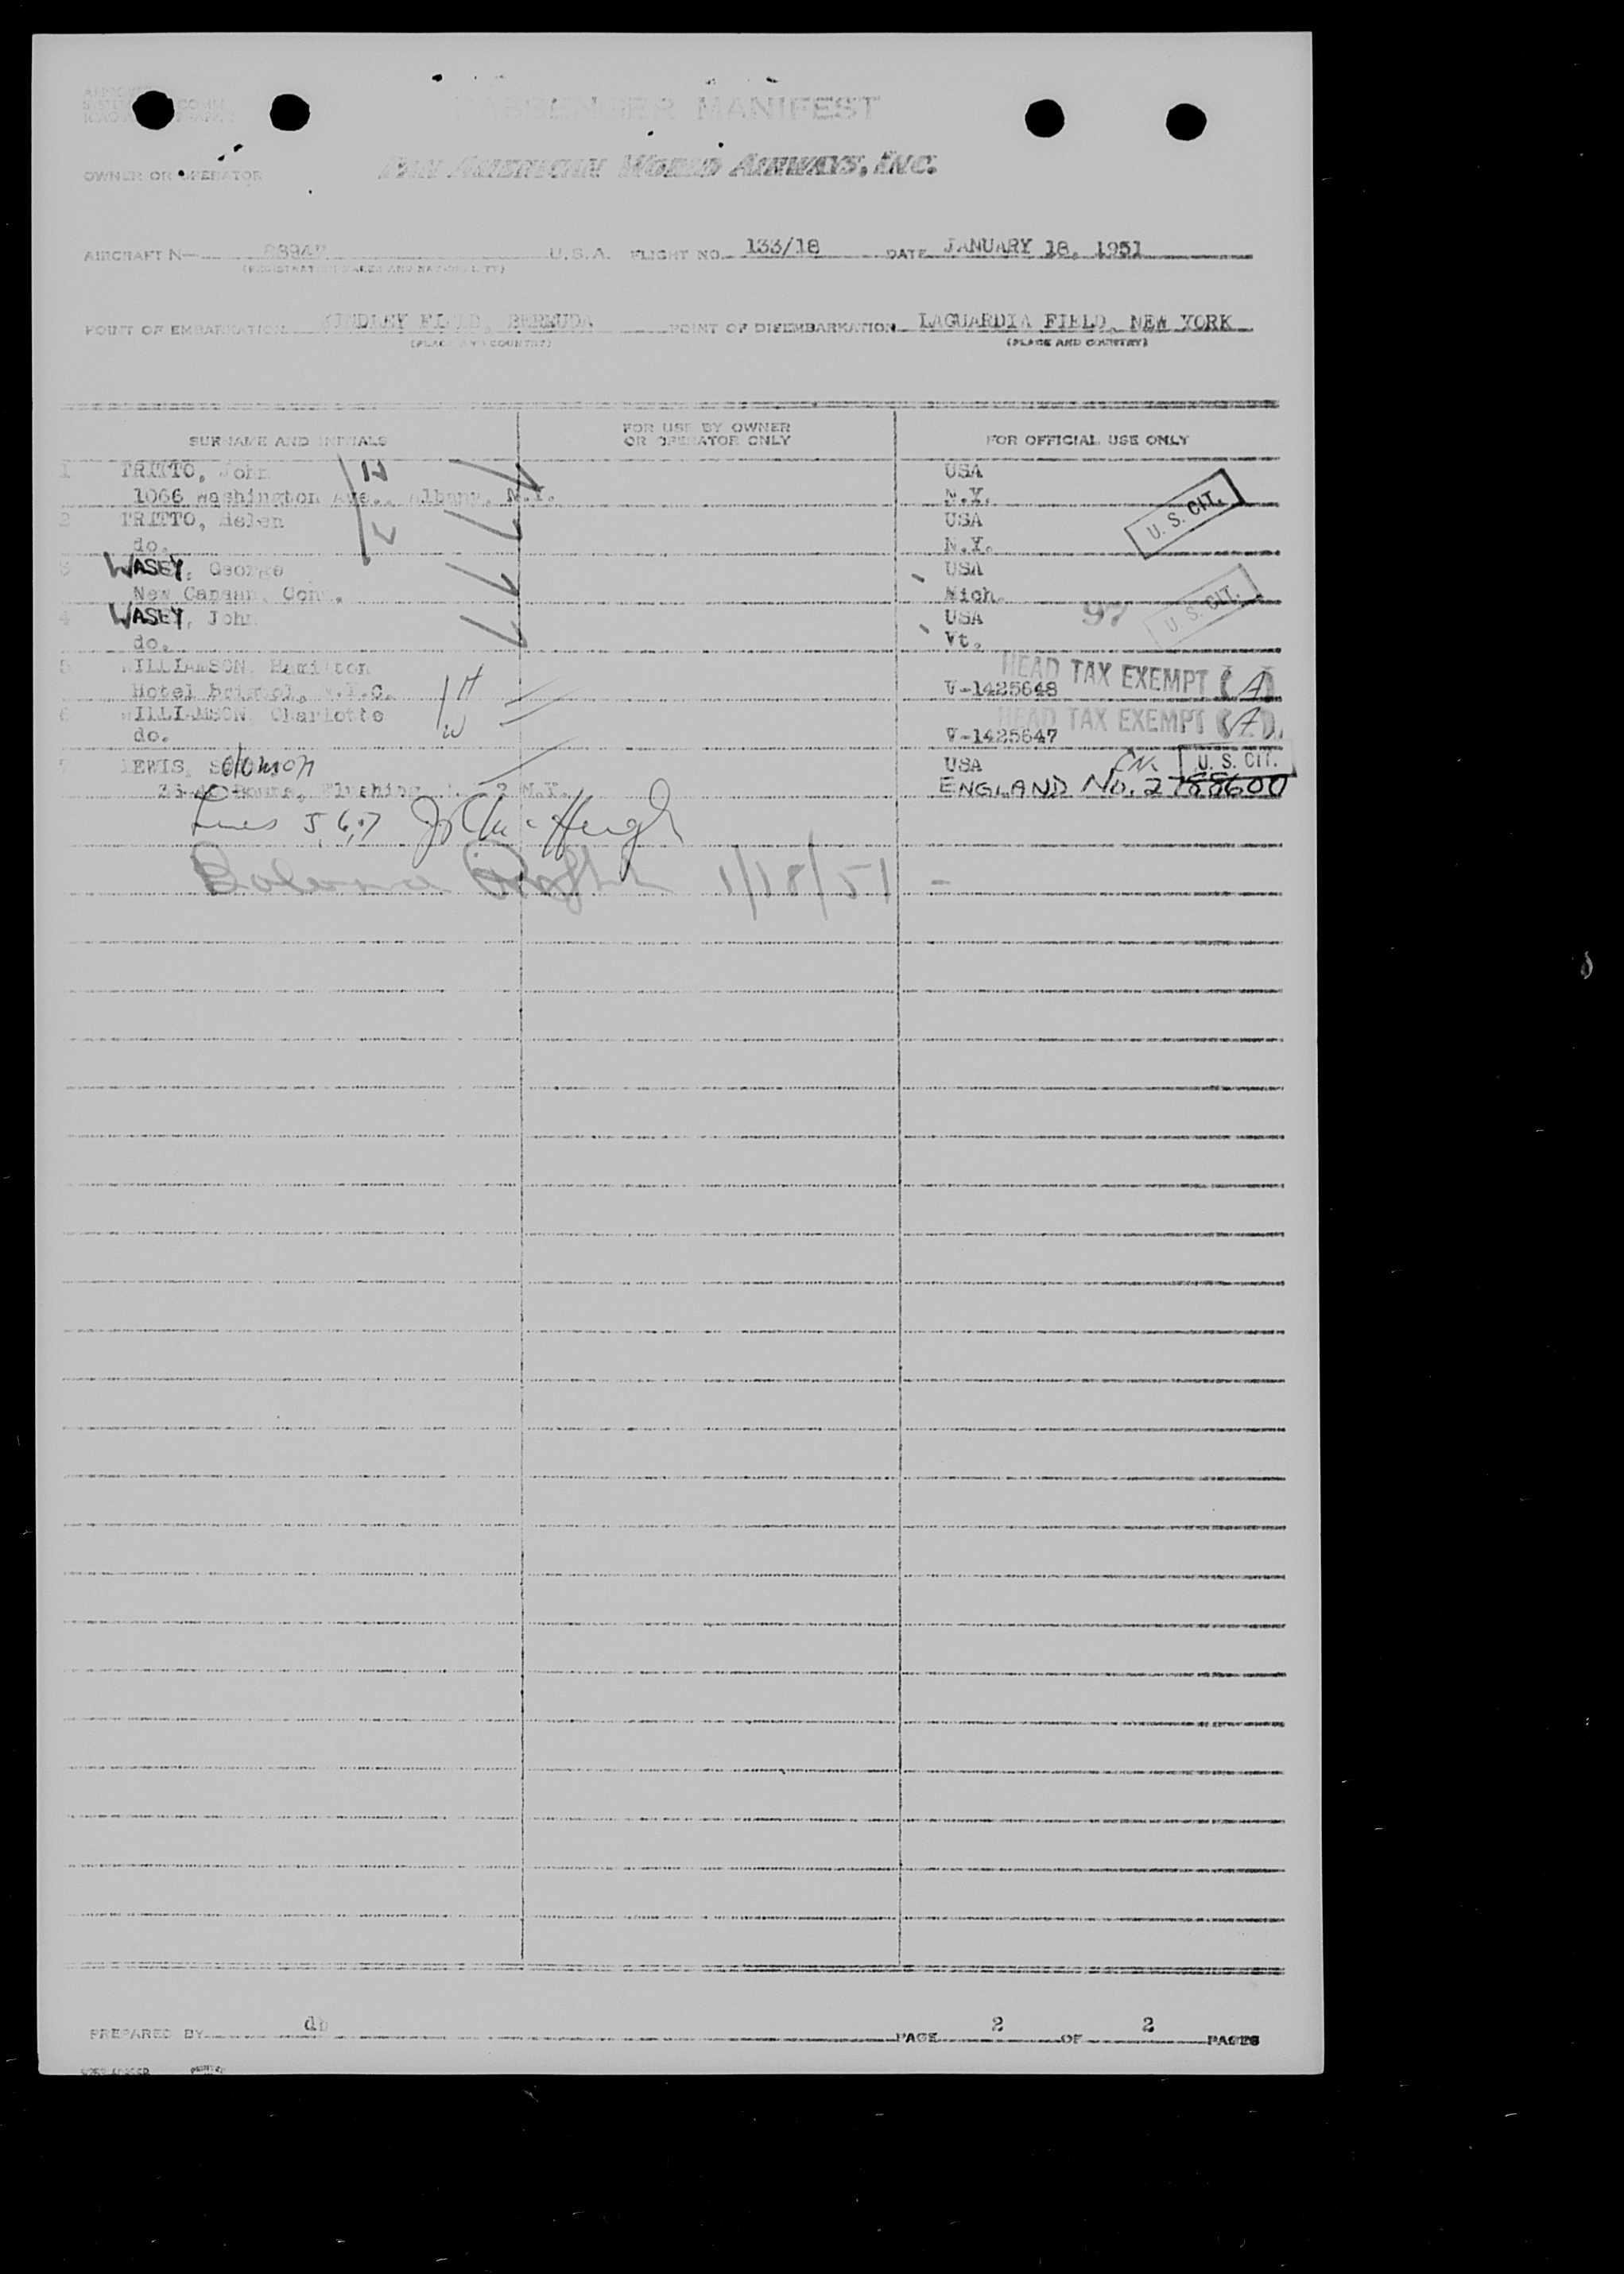 PASSENGER MANIFEST
OWNER OR OPERATOR
PAN AMERICAN WORLD AIRWAYS, INC.
AIRCRAFT N— U.S.A. FLIGHT NO. 133/18 DATE JANUARY 18, 1951
POINT OF EMBARKATION KINDLEY FIELD, BERMUDA POINT OF DISEMBARKATION LAGUARDIA FIELD, NEW YORK
(PLACE AND COUNTRY) (PLACE AND COUNTRY)
SURNAME AND INITIALS FOR USE BY OWNER OR OPERATOR ONLY FOR OFFICIAL USE ONLY
1 TRITTO, John H USA
1066 Washington Ave., Albany, N.Y. N.Y. U. S. CIT.
2 TRITTO, Helen USA
do. N.Y.
3 WASEY, George USA
New Canaan, Conn. Mich.
4 WASEY, John USA 97 U. S. CIT.
do. Vt.
5 WILLIAMSON, Hamilton HEAD TAX EXEMPT (A)
Hotel Bristol, N.Y.C. H V-1425648
6 WILLIAMSON, Charlotte HEAD TAX EXEMPT (A)
do. W V-1425647
7 Solomon USA U. S. CIT.
Flushing N.Y. ENGLAND No.
Lines 5,6,7
1/18/51 -
PREPARED BY db PAGE 2 OF 2 PAGES